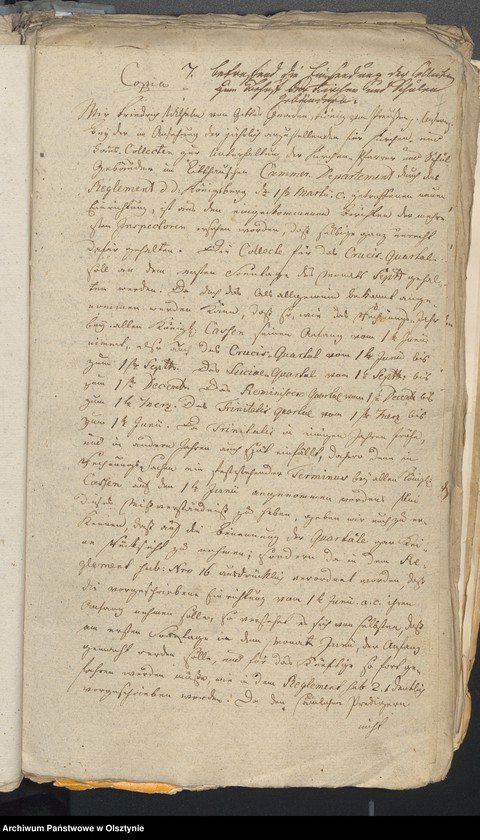 Copia
7. betreffend die Einsendung der Collecten
zum Behuf der Kirchen und Schulen
Gebäuden.
Wir Friedrich Wilhelm von Gottes Gnaden, König von Preußen,
der in Ansehung der jährlich anzustellenden Kirchen und
Haus Collecten zur Unterhaltung der Kirchen, Pfarr und Schul
Gebäuden im Litthauschen Cammer Departement durch das
Reglement d. d. Königsberg d. 1ste Martii c. getroffenen neuen
Einrichtung, ist aus den eingekommenen Berichten der mehre-
sten Inspectoren ersehen worden, daß selbige ganz unrecht
gehalten. Die Collecte für das Crucis-Quartal
soll an dem ersten Sonntage des Monats Septbr gehal-
ten werden. Da doch als allgemein bekannt ange-
nommen werden können, daß so, wie das Rechnungs-Jahr
bey allen Königl. Cassen seinen Anfang vom 1ste Junii
nimmt, also auch das Crucis-Quartal vom 1ste Junii bis
zum 1ste Septbr. Das Luciae-Quartal vom 1ste Septbr. bis
zum 1ste Decembr. Das Reminiscere Quartal vom 1ste Decembr bis
zum 1ste Merz. Das Trinitatis Quartal vom 1ste Merz bis
zum 1ste Junii. Da Trinitatis in einigen Jahren früh,
und in andern Jahren auch spät einfällt, daher denn in
Rechnungs-Sachen ein feststehender Terminus bey allen Königl.
Cassen auf den 1ste Junii angenommen worden. Um
dieses Mißverständniß zu heben, geben wir auch zu er-
kennen, daß auf die Benennung der Quartale gar kei-
ne Rücksicht zu nehmen; sondern da in dem Re-
glement sub Nro 16 ausdrücklich verordnet worden, daß
die vorgeschriebene Einrichtung vom 1ste Junii a. c. ihren
Anfang nehmen solle, so verstehet es sich von selbsten, daß
am ersten Sonntage in dem Monat Junii, der Anfang
gemacht werden solle, und für das Künftige so fort ge-
fahren werden müße, wie in dem Reglement sub 2. deutlich
vorgeschrieben worden. Da den Predigern
nicht
Archiwum Państwowe w Olsztynie